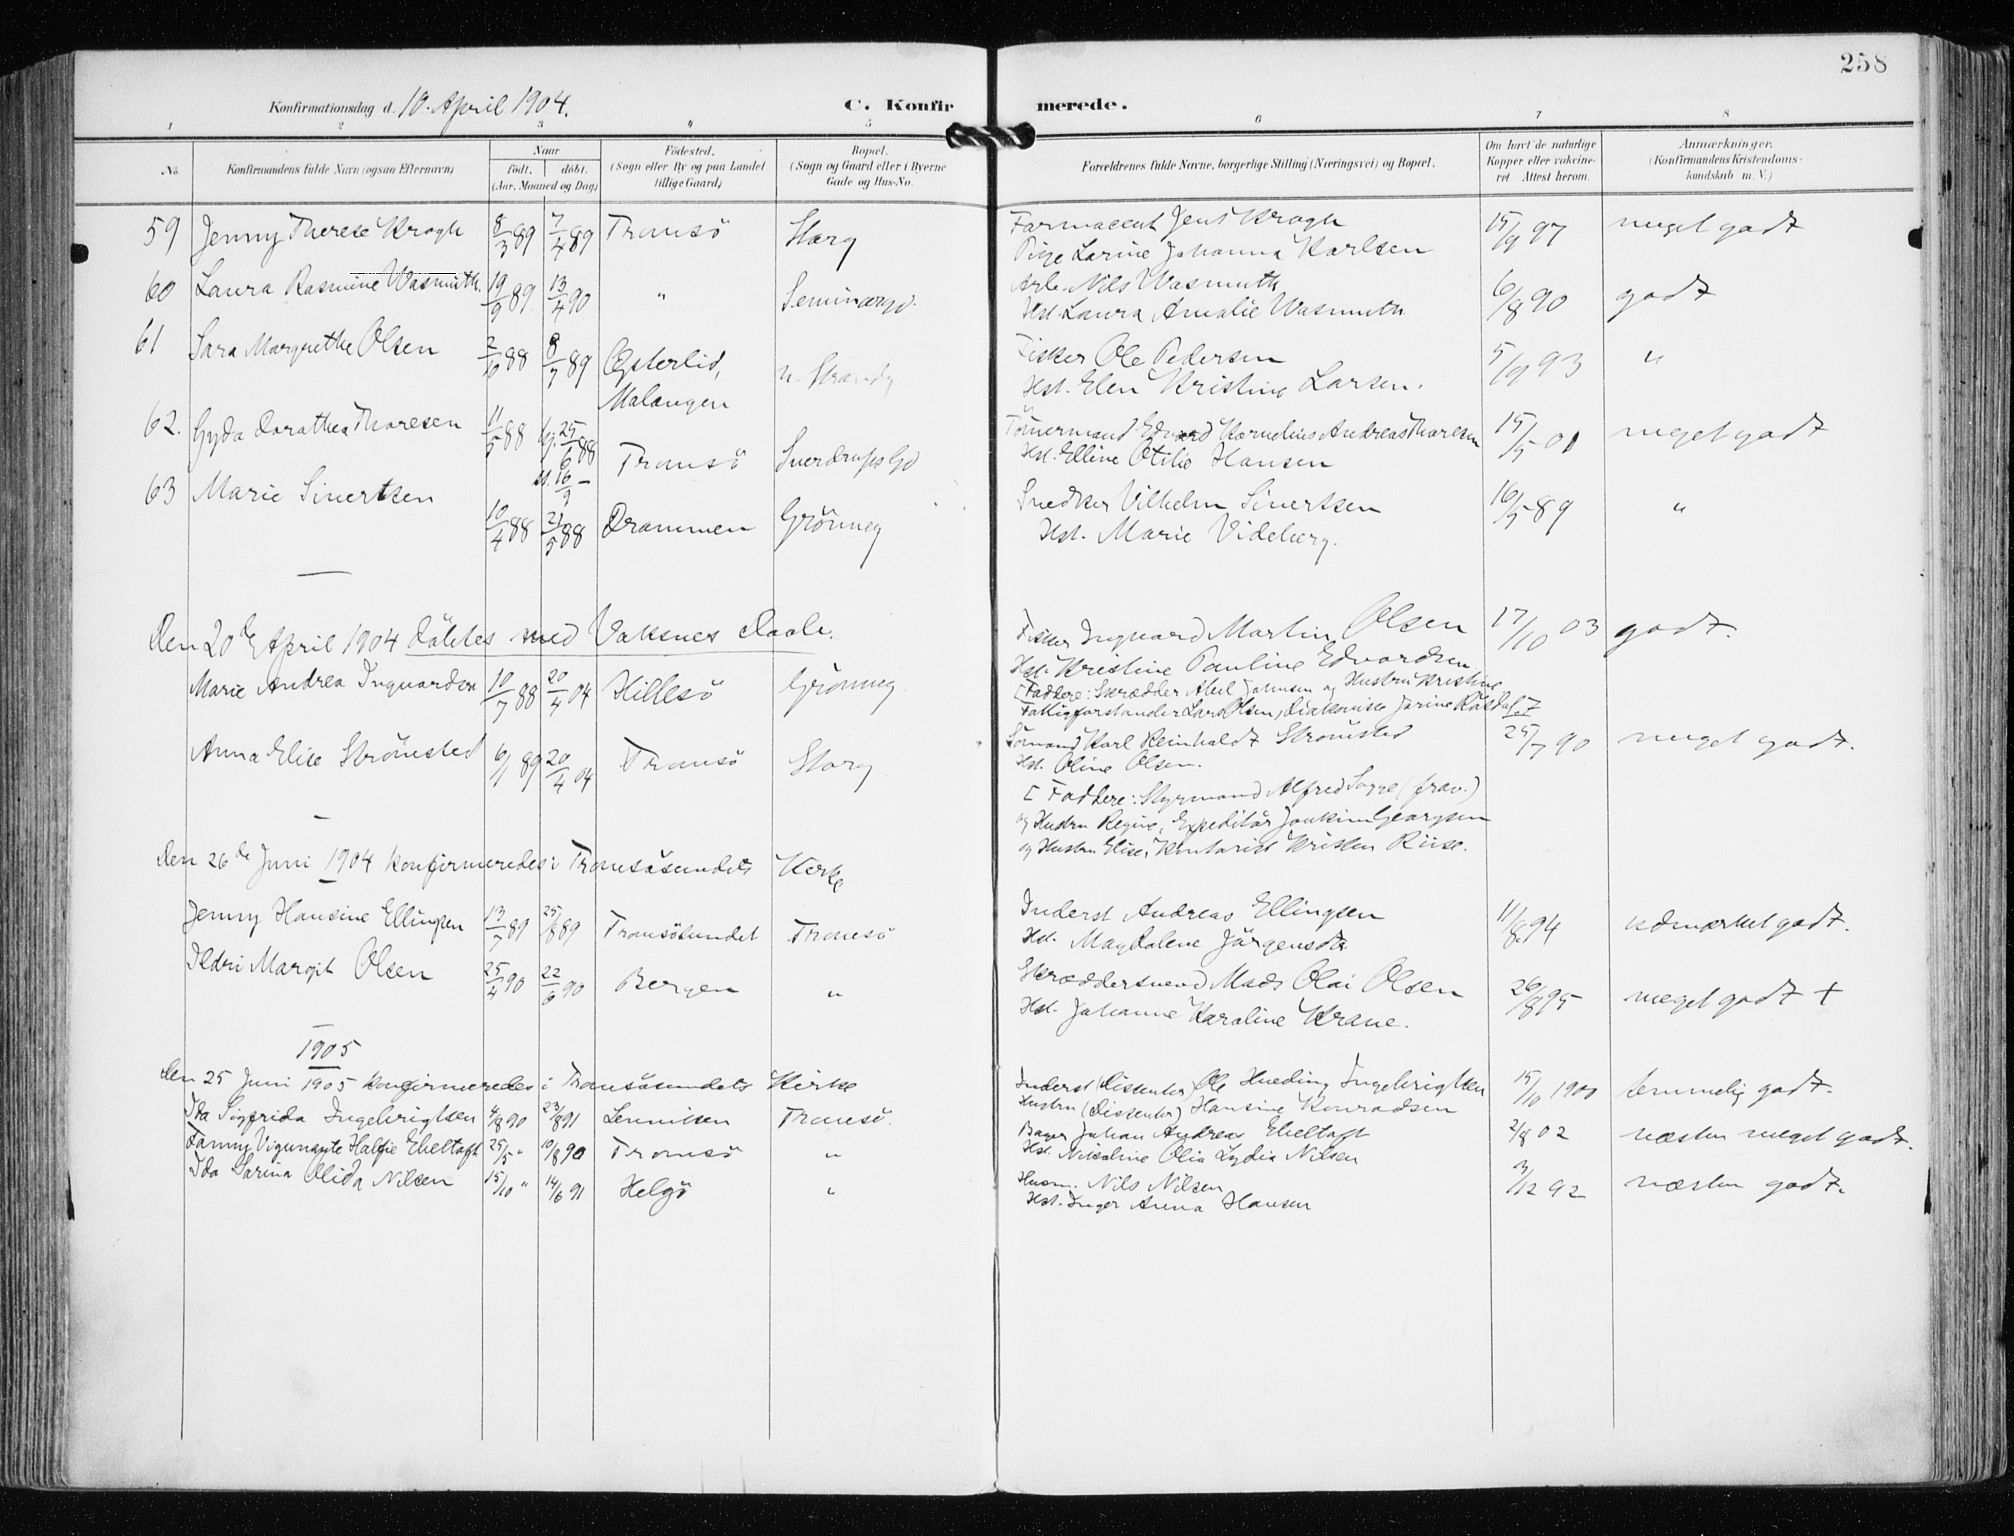 258
Konfirmationsdag d. 10. April 1904.
C. Konfirmerede.
1 2 3 4 5 6 7 8
No. Konfirmandens fulde Navn (ogsaa Efternavn) Naar födt. döbt. (Aar, Maaned og Dag) Födested. (Sogn eller By og paa Landet tillige Gaard) Bopæl. (Sogn og Gaard eller i Byerne Gade og Hus-No. Forældrenes fulde Navne, borgerlige Stilling (Næringsvei) og Bopæl. Om havt de naturlige Kopper eller vaccineret Attest herom. Anmærkninger. (Konfirmandens Kristendomskundskab m. V.)
59 Jenny Therese Krogh 8/3 89 7/4 89 Tromsö Storg Farmaceut Jens Krogh 15/9 97 meget godt
Pige Larine Johanna Karlsen
60 Laura Rasmine Wasmuth 19/9 89. 13/4 90 " Seminargd. Arb. Nils Wasmuth 6/8 90 godt
Hst. Laura Amalie Wasmuth
61 Sara Margrethe Olsen 2/10 88 8/7 89 Østerlid, Malangen n. Strandg Fisker Ole Pedersen 5/9 93 "
Hst. Elen Kristine Larsen.
62. Gyda Dorathea Thoresen 11/5 88 hj. 25/6 88 st. 16/9 – Tromsö Sverdrups Gd Tömermand Edvard Kornelius Andreas Thoresen 15/5 01 meget godt
Hst. Elline Otilie Hansen
63 Marie Sivertsen 10/4 88 21/5 88 Drammen Grönneg Snedker Vilhelm Sivertsen 16/5 89 "
Hst. Marie Videberg.
Den 20de April 1904 döbtes med Voksnes Daab.
Marie Andrea Ingvardsen 10/7 88 20/4 04 Hillesö Grönneg. Fisker Ingvard Martin Olsen 17/10 03 godt.
Hst. Kristine Pauline Edvardsen
[Faddere: Skrædder Abel Johnsen og Hustru Kristine
Fattigforstander Lars Olsen, Diakonisse Jörine Röisdal.]
Anna Elise Strömsted 6/1 89 20/4 04 Tromsö Storg Sömand Karl Reinholdt Strömsted 25/7 90 meget godt.
Hst. Oline Olsen.
[Faddere: Styrmand Alfred Sagge (frav.)
og Hustru Regine, Expeditör Joakim Georgsen
og Hustru Elise, Kontorist Kristen Riise.
Den 26de Juni 1904 konfirmeredes i Tromsösundets Kirke
Jenny Hansine Ellingsen 13/7 89 25/8 89 Tromsösundet Tromsö Inderst Andreas Ellingsen 11/8 94 udmærket godt.
Hst. Magdalene Jörgensdtr
Ildri Margit Olsen 25/4 90 22/6 90 Bergen " Skræddersvend Mads Olai Olsen 26/8 95 meget godt +
Hst. Johanne Karoline Krane.
1905
Den 25 Juni 1905 konfirmeredes i Tromsösundets Kirke
Ida Sigfrida Ingebrigtsen 4/8 90 23/8 91 Lenvik­sen Tromsö. Inderst (Dissenter) Ole Hveding Ingebrigtsen 15/10 1900 temmelig godt.
Hustru (Dissenter) Hansine Konradsen
Fanny Vigunante Halfie Ebeltoft 25/5 " 10/8 90 Tromsö " Bager Johan Andreas Ebeltoft 2/8 02 næsten meget godt.
Hst. Nikoline Olia Lydia Nilsen
Ida Sarina Olida Nilsen 15/10 " 14/6 91 Helgö " Husm. Nils Nilsen 3/12 92 næsten godt.
Hst. Inger Anna Hansen